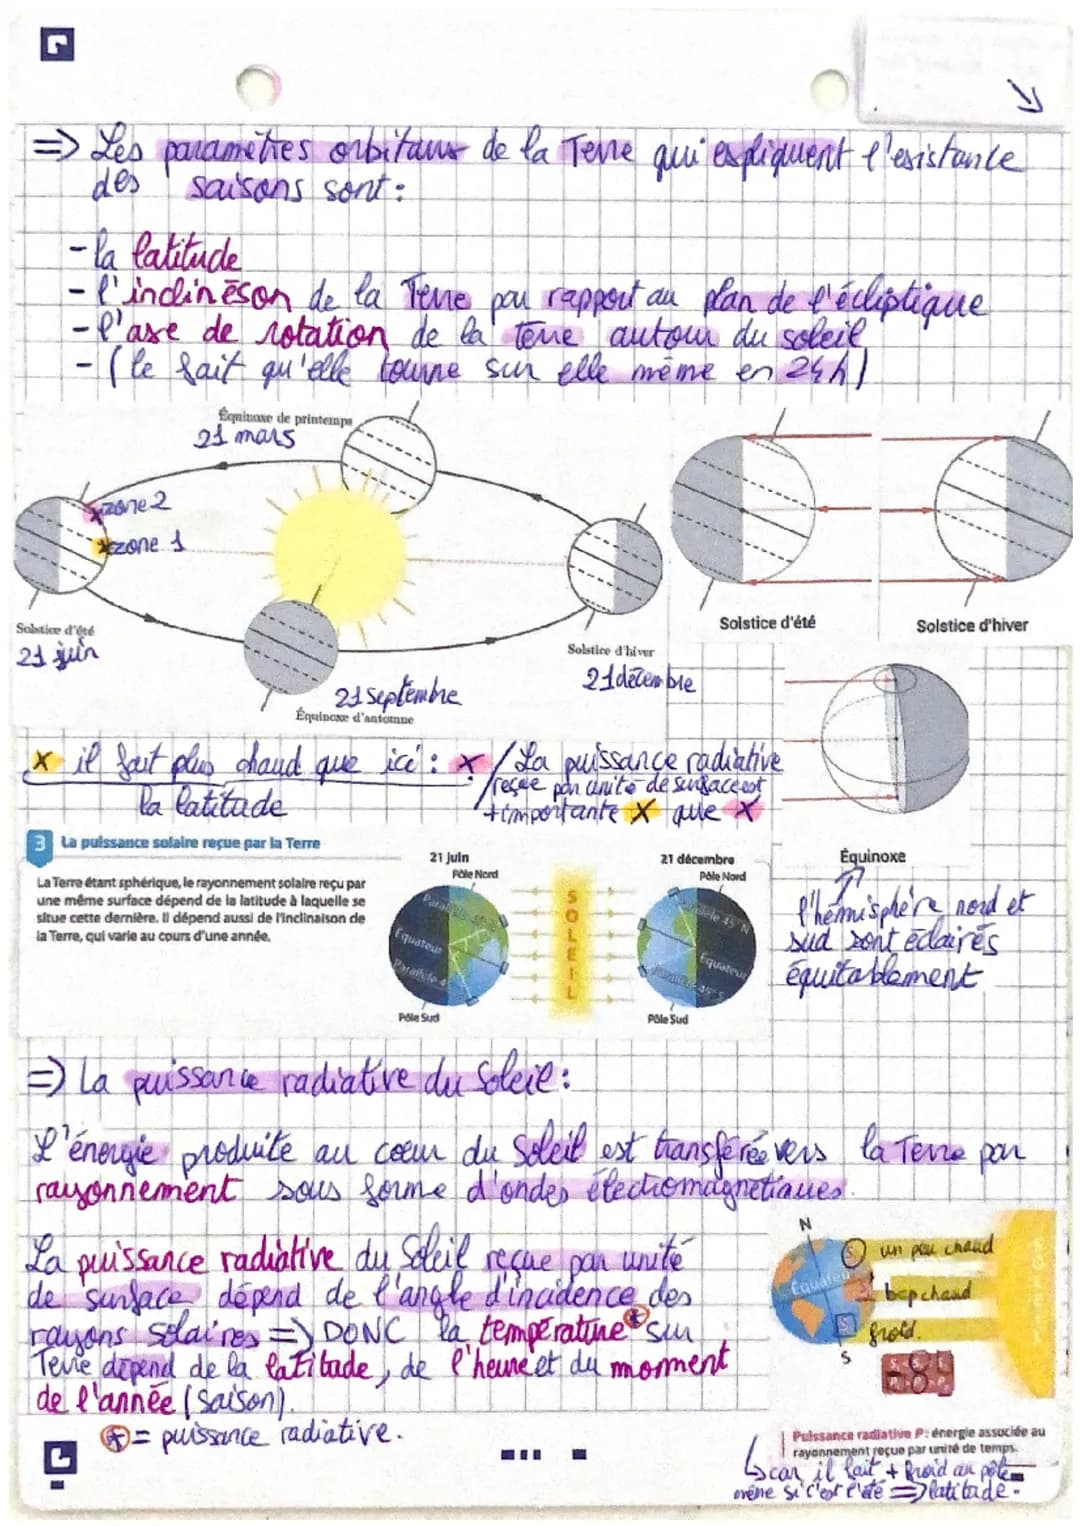 => Les paramètres orbitaux de la Terre qui expliquent l'existance
des saisons sont :
- la latitude
- l'inclinéson de la Terre par rapport au plan de l'écliptique
- l'axe de rotation de la terre autour du soleil
- (le fait qu'elle tourne sur elle même en 24h)
Équinoxe de printemps
21 mars
zone 2
zone 1
Solstice d'été
21 juin
Solstice d'hiver
21 décembre
21 Septembre
Équinoxe d'automne
Solstice d'été
Solstice d'hiver
x il fait plus chaud que icé : x / La puissance radiative
reçue par unité de surface est
la latitude
+ importante x que x
Équinoxe
l'hémisphère nord et
sud sont éclairés
équitablement
3 La puissance solaire reçue par la Terre
La Terre étant sphérique, le rayonnement solaire reçu par
une même surface dépend de la latitude à laquelle se
situe cette dernière. Il dépend aussi de l'inclinaison de
la Terre, qui varie au cours d'une année.
21 juin
Pôle Nord
Équateur
Pôle Sud
SOLEIL
21 décembre
Pôle Nord
45° N
Équateur
45° S
Pôle Sud
=> La puissance radiative du Soleil :
L'énergie produite au cœur du Soleil est transférée vers la Terre par
rayonnement sous forme d'ondes électromagnétiques.
La puissance radiative du Soleil reçue par unité
de surface dépend de l'angle d'incidence des
rayons solaires => DONC la température * sur
Terre dépend de la latitude, de l'heure et du moment
de l'année (saison).
* = puissance radiative.
N
un peu chaud
Équateur
bcp chaud
froid.
S
Puissance radiative P : énergie associée au
rayonnement reçue par unité de temps.
car il fait + froid au pôle
même si c'est l'été => latitude.